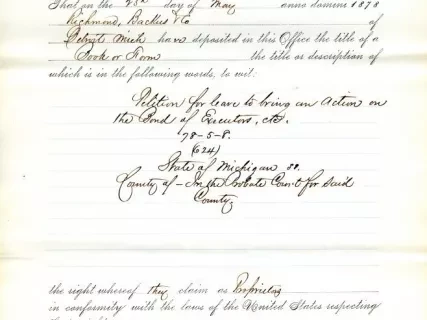 That on the 25th day of May anno domini 1878
Richmond, Backus & Co of
Detroit Mich have deposited in this Office the title of a
Book or Form the title or description of
which is in the following words, to wit:
Petition for leave to bring an Action on
the Bond of Executors, etc.
78-5-8.
(624)
State of Michigan ss.
County of - In the Probate Court for said
County
the right whereof they claim as Proprietors
in conformity with the laws of the United States respecting